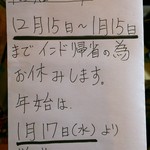 12月15日~1月15日
までインド帰省の為
お休みします。
年始は、
1月17日(水)より